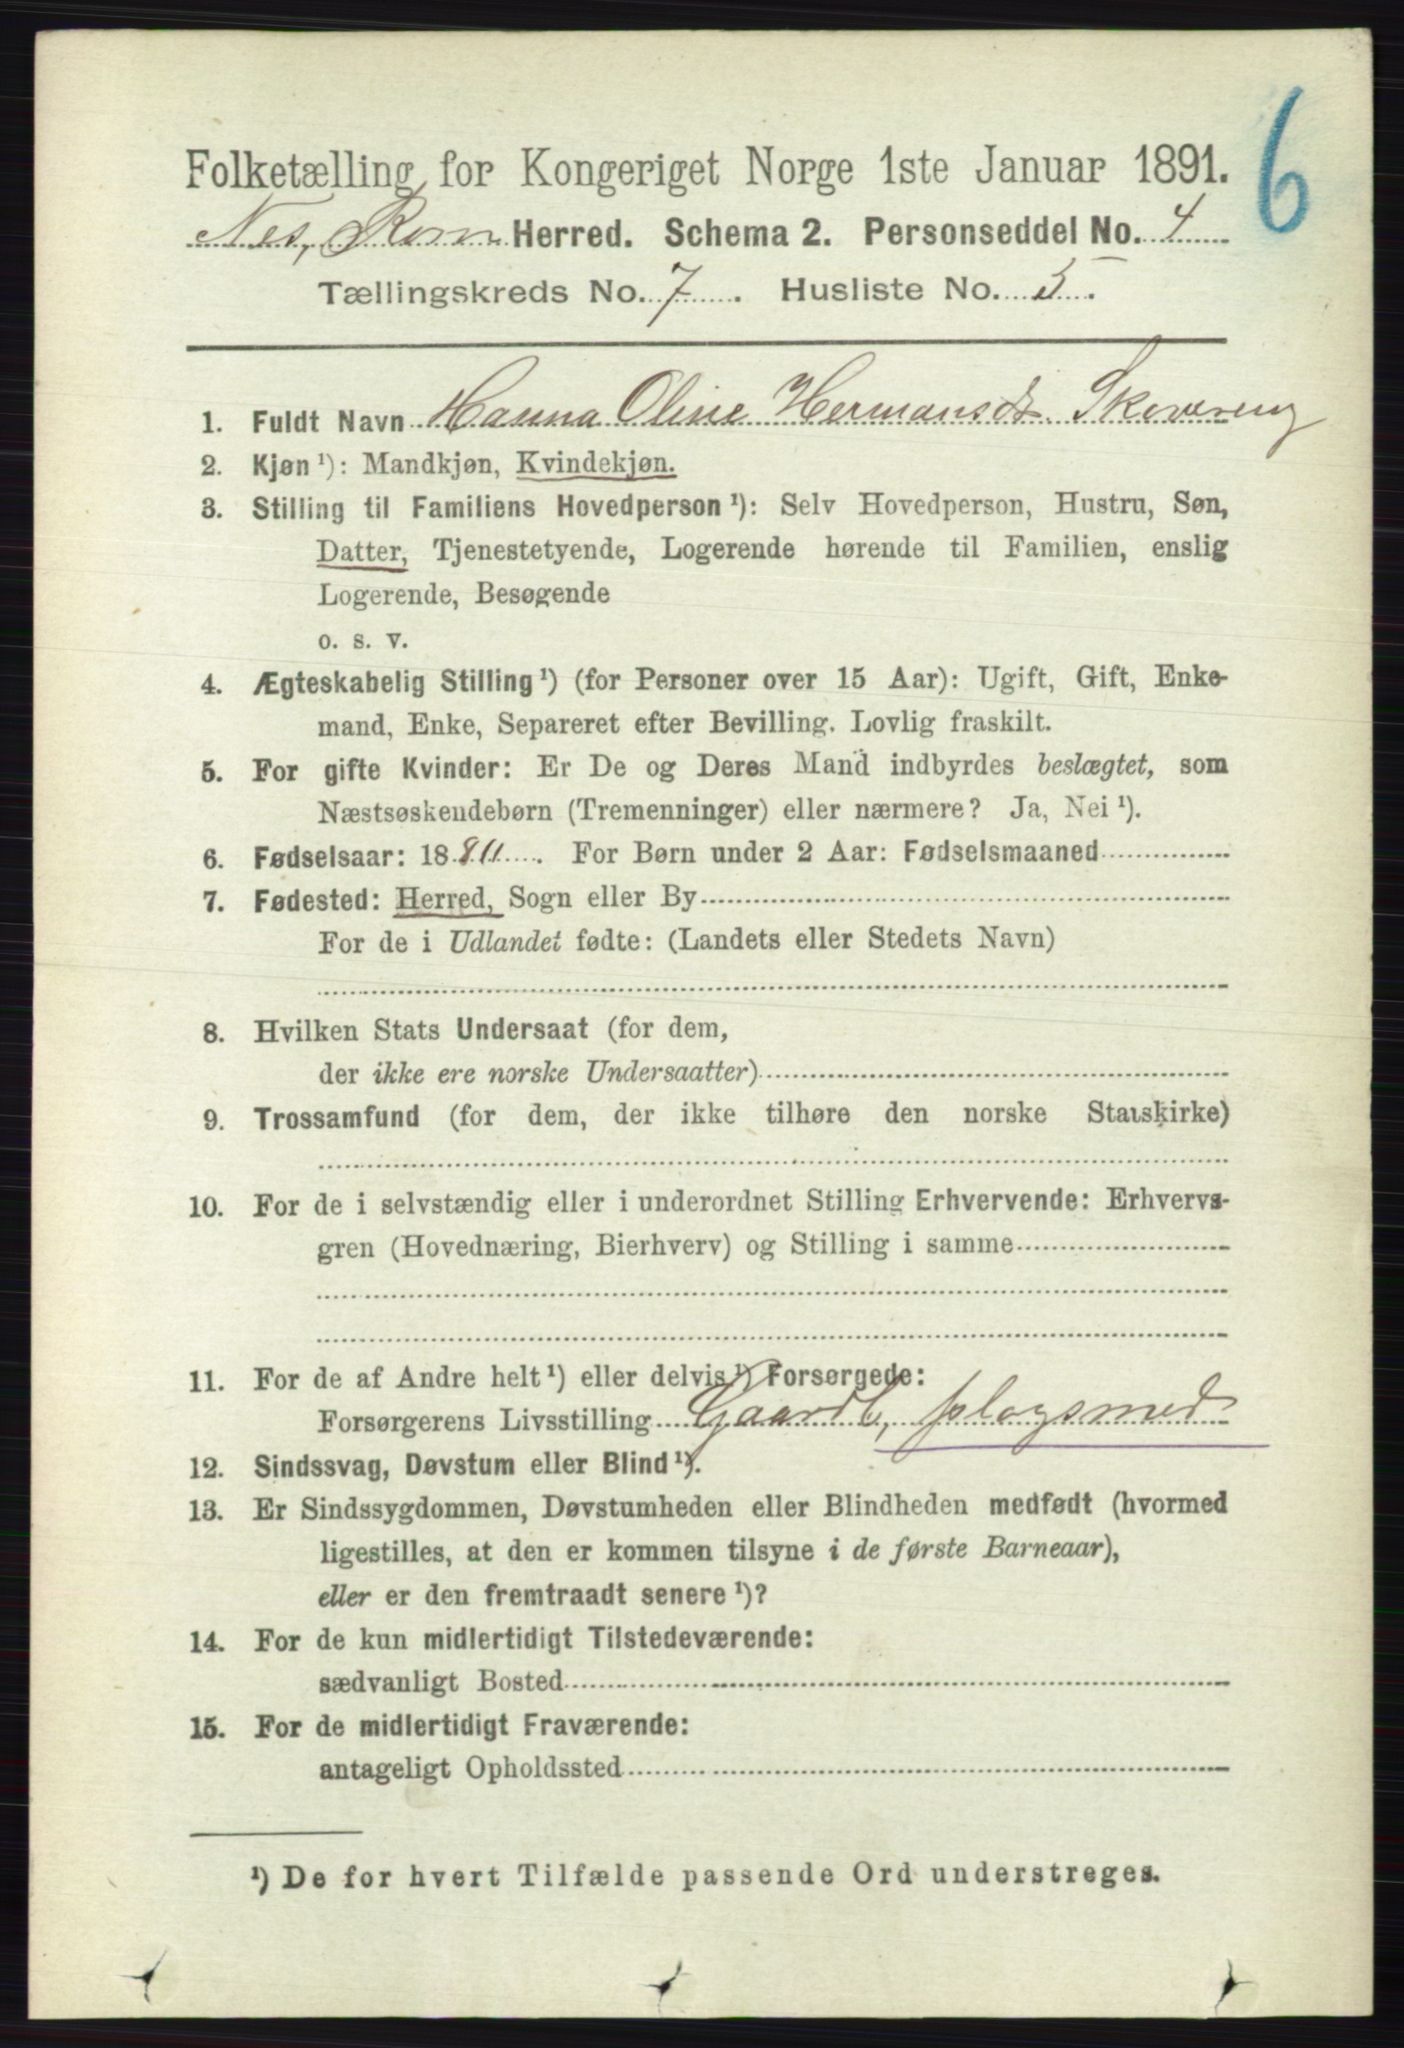 6
Folketælling for Kongeriget Norge 1ste Januar 1891.
Nes, Rom Herred. Schema 2. Personseddel No. 4
Tællingskreds No. 7. Husliste No. 5.
1. Fuldt Navn Hanna Oline Hermansdt.
2. Kjøn ¹): Mandkjøn, Kvindekjøn.
3. Stilling til Familiens Hovedperson ¹): Selv Hovedperson, Hustru, Søn,
Datter, Tjenestetyende, Logerende hørende til Familien, enslig
Logerende, Besøgende
o. s. v.
4. Ægteskabelig Stilling ¹) (for Personer over 15 Aar): Ugift, Gift, Enke-
mand, Enke, Separeret efter Bevilling. Lovlig fraskilt.
5. For gifte Kvinder: Er De og Deres Mand indbyrdes beslægtet, som
Næstsøskendebørn (Tremenninger) eller nærmere? Ja, Nei ¹).
6. Fødselsaar: 18. For Børn under 2 Aar: Fødselsmaaned
7. Fødested: Herred, Sogn eller By
For de i Udlandet fødte: (Landets eller Stedets Navn)
8. Hvilken Stats Undersaat (for dem,
der ikke ere norske Undersaatter)
9. Trossamfund (for dem, der ikke tilhøre den norske Statskirke)
10. For de i selvstændig eller i underordnet Stilling Erhvervende: Erhvervs-
gren (Hovednæring, Bierhverv) og Stilling i samme
11. For de af Andre helt ¹) eller delvis ¹) Forsørgede:
Forsørgerens Livsstilling Gaardb, plogsmed
12. Sindssvag, Døvstum eller Blind ¹).
13. Er Sindssygdommen, Døvstumheden eller Blindheden medfødt (hvormed
ligestilles, at den er kommen tilsyne i de første Barneaar),
eller er den fremtraadt senere ¹)?
14. For de kun midlertidigt Tilstedeværende:
sædvanligt Bosted
15. For de midlertidigt Fraværende:
antageligt Opholdssted
¹) De for hvert Tilfælde passende Ord understreges.